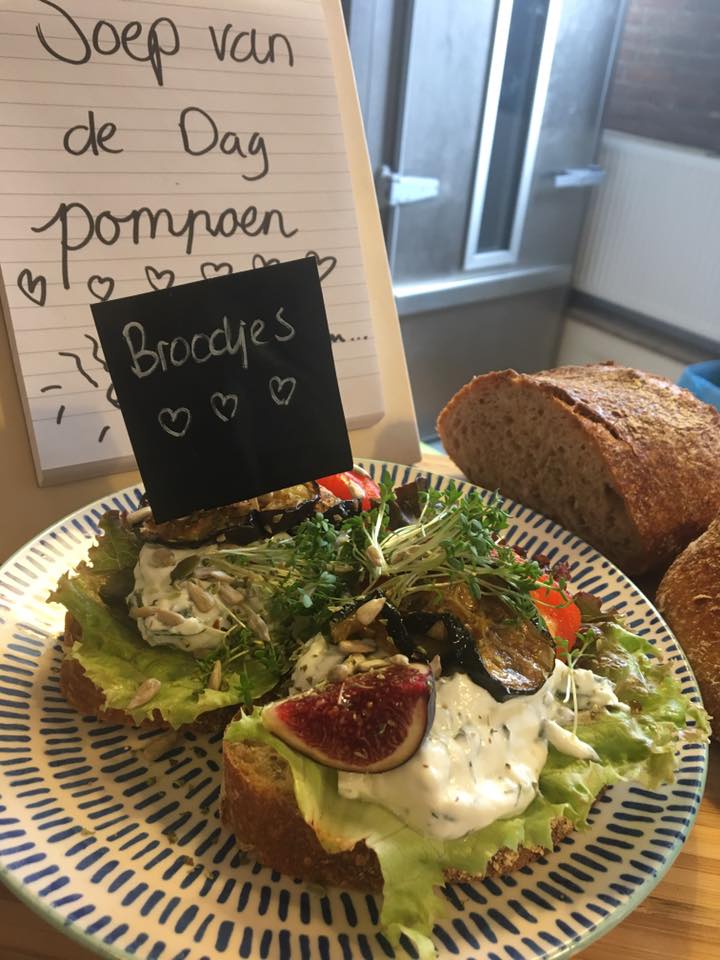 Soep van
de Dag
pompoen
Broodjes